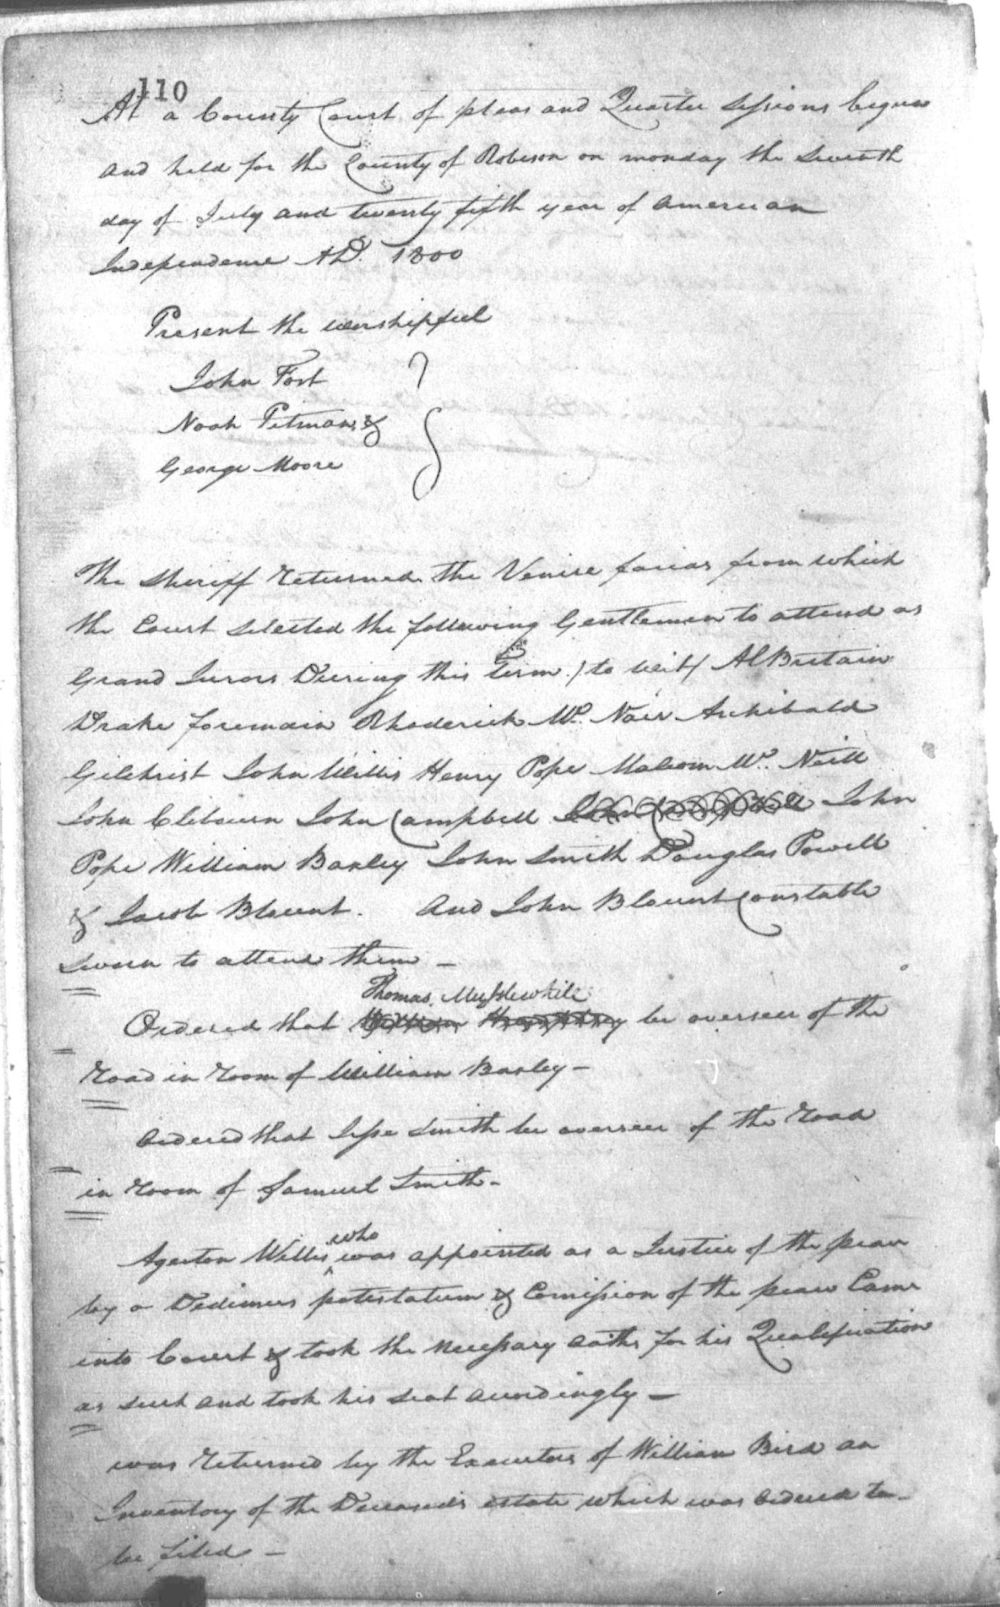 110
At a County Court of pleas and Quarter Sessions begun
and held for the County of Robeson on monday the Seventh
day of July and twenty fifth year of American
Independence A.D. 1800
Present the worshipfull
John Fort
Noah Pitman &
George Moore
The Sheriff Returned the Venire facias from which
the Court selected the following Gentlemen to attend as
Grand Jurors During this Term /to wit/ AlBritain
Drake foremain Rhoderick Mc. Nair Archibald
Gilchrist John Willis Henry Pope Malcom Mc. Neill
John Clibourn John Campbell John Campbell John
Pope William Baxley John Smith Douglas Powell
& Jacob Blount. And John Blount Constable
Sworn to attend them -
Thomas Musslewhile
Ordered that be overseer of the
Road in Room of William Baxley -
Ordered that Jesse Smith be overseer of the Road
in Room of Samuel Smith -
who
Agerton Willis ^ was appointed as a Justice of the peace
by a Dedimus potestatum & Comission of the peace Came
into Court & took the necessary oaths for his Qualification
as such and took his seat accordingly -
was Returned by the Executors of William Bird an
Inventory of the Deceased's estate which was Ordered to
be filed -